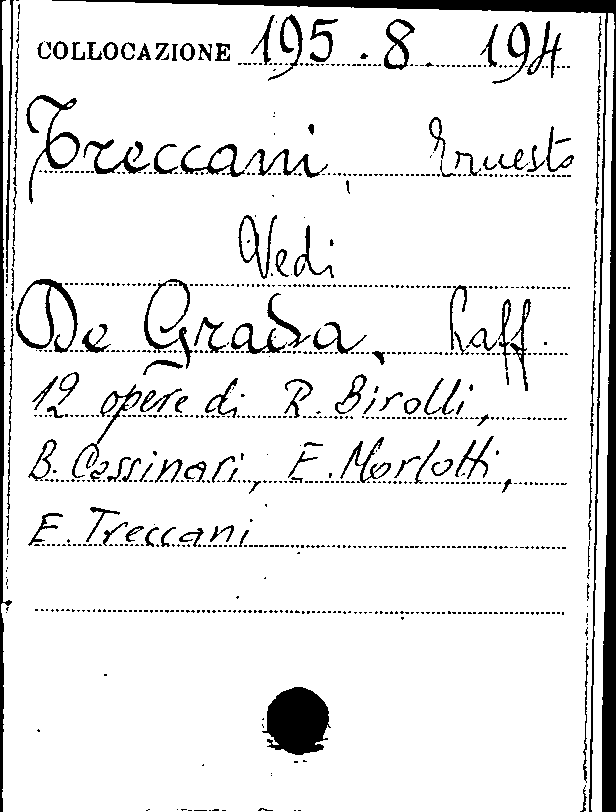 COLLOCAZIONE 195.8.194
Treccani, Ernesto
Vedi
De Grada, Raff.
12 opere di R. Birolli,
B. Cassinari, E. Morlotti,
E. Treccani